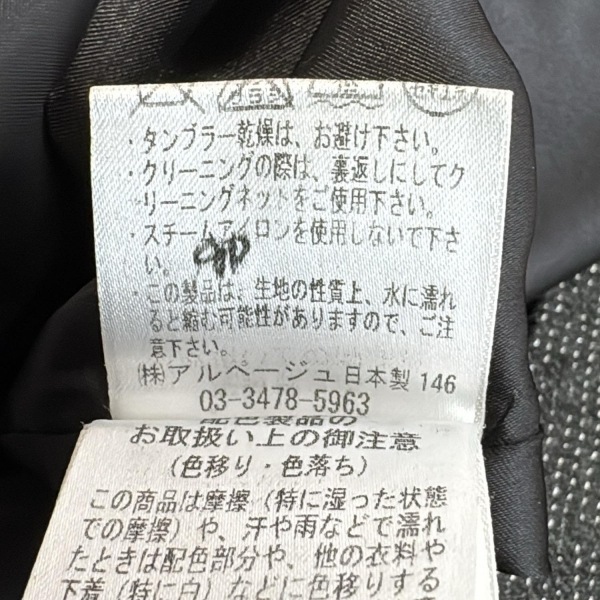 ・タンブラー乾燥は、お避け下さい。
・クリーニングの際は、裏返しにしてク
リーニングネットをご使用下さい。
・スチームアイロンを使用しないで下さ
い。
・この製品は、生地の性質上、水に濡れ
ると縮む可能性がありますので、ご注
意下さい。
㈱アルページュ日本製 146
03-3478-5963
配色製品の
お取扱い上の御注意
(色移り・色落ち)
この商品は摩擦(特に湿った状態
での摩擦)や、汗や雨などで濡れ
たときは配色部分や、他の衣料や
下着(特に白)などに色移りする